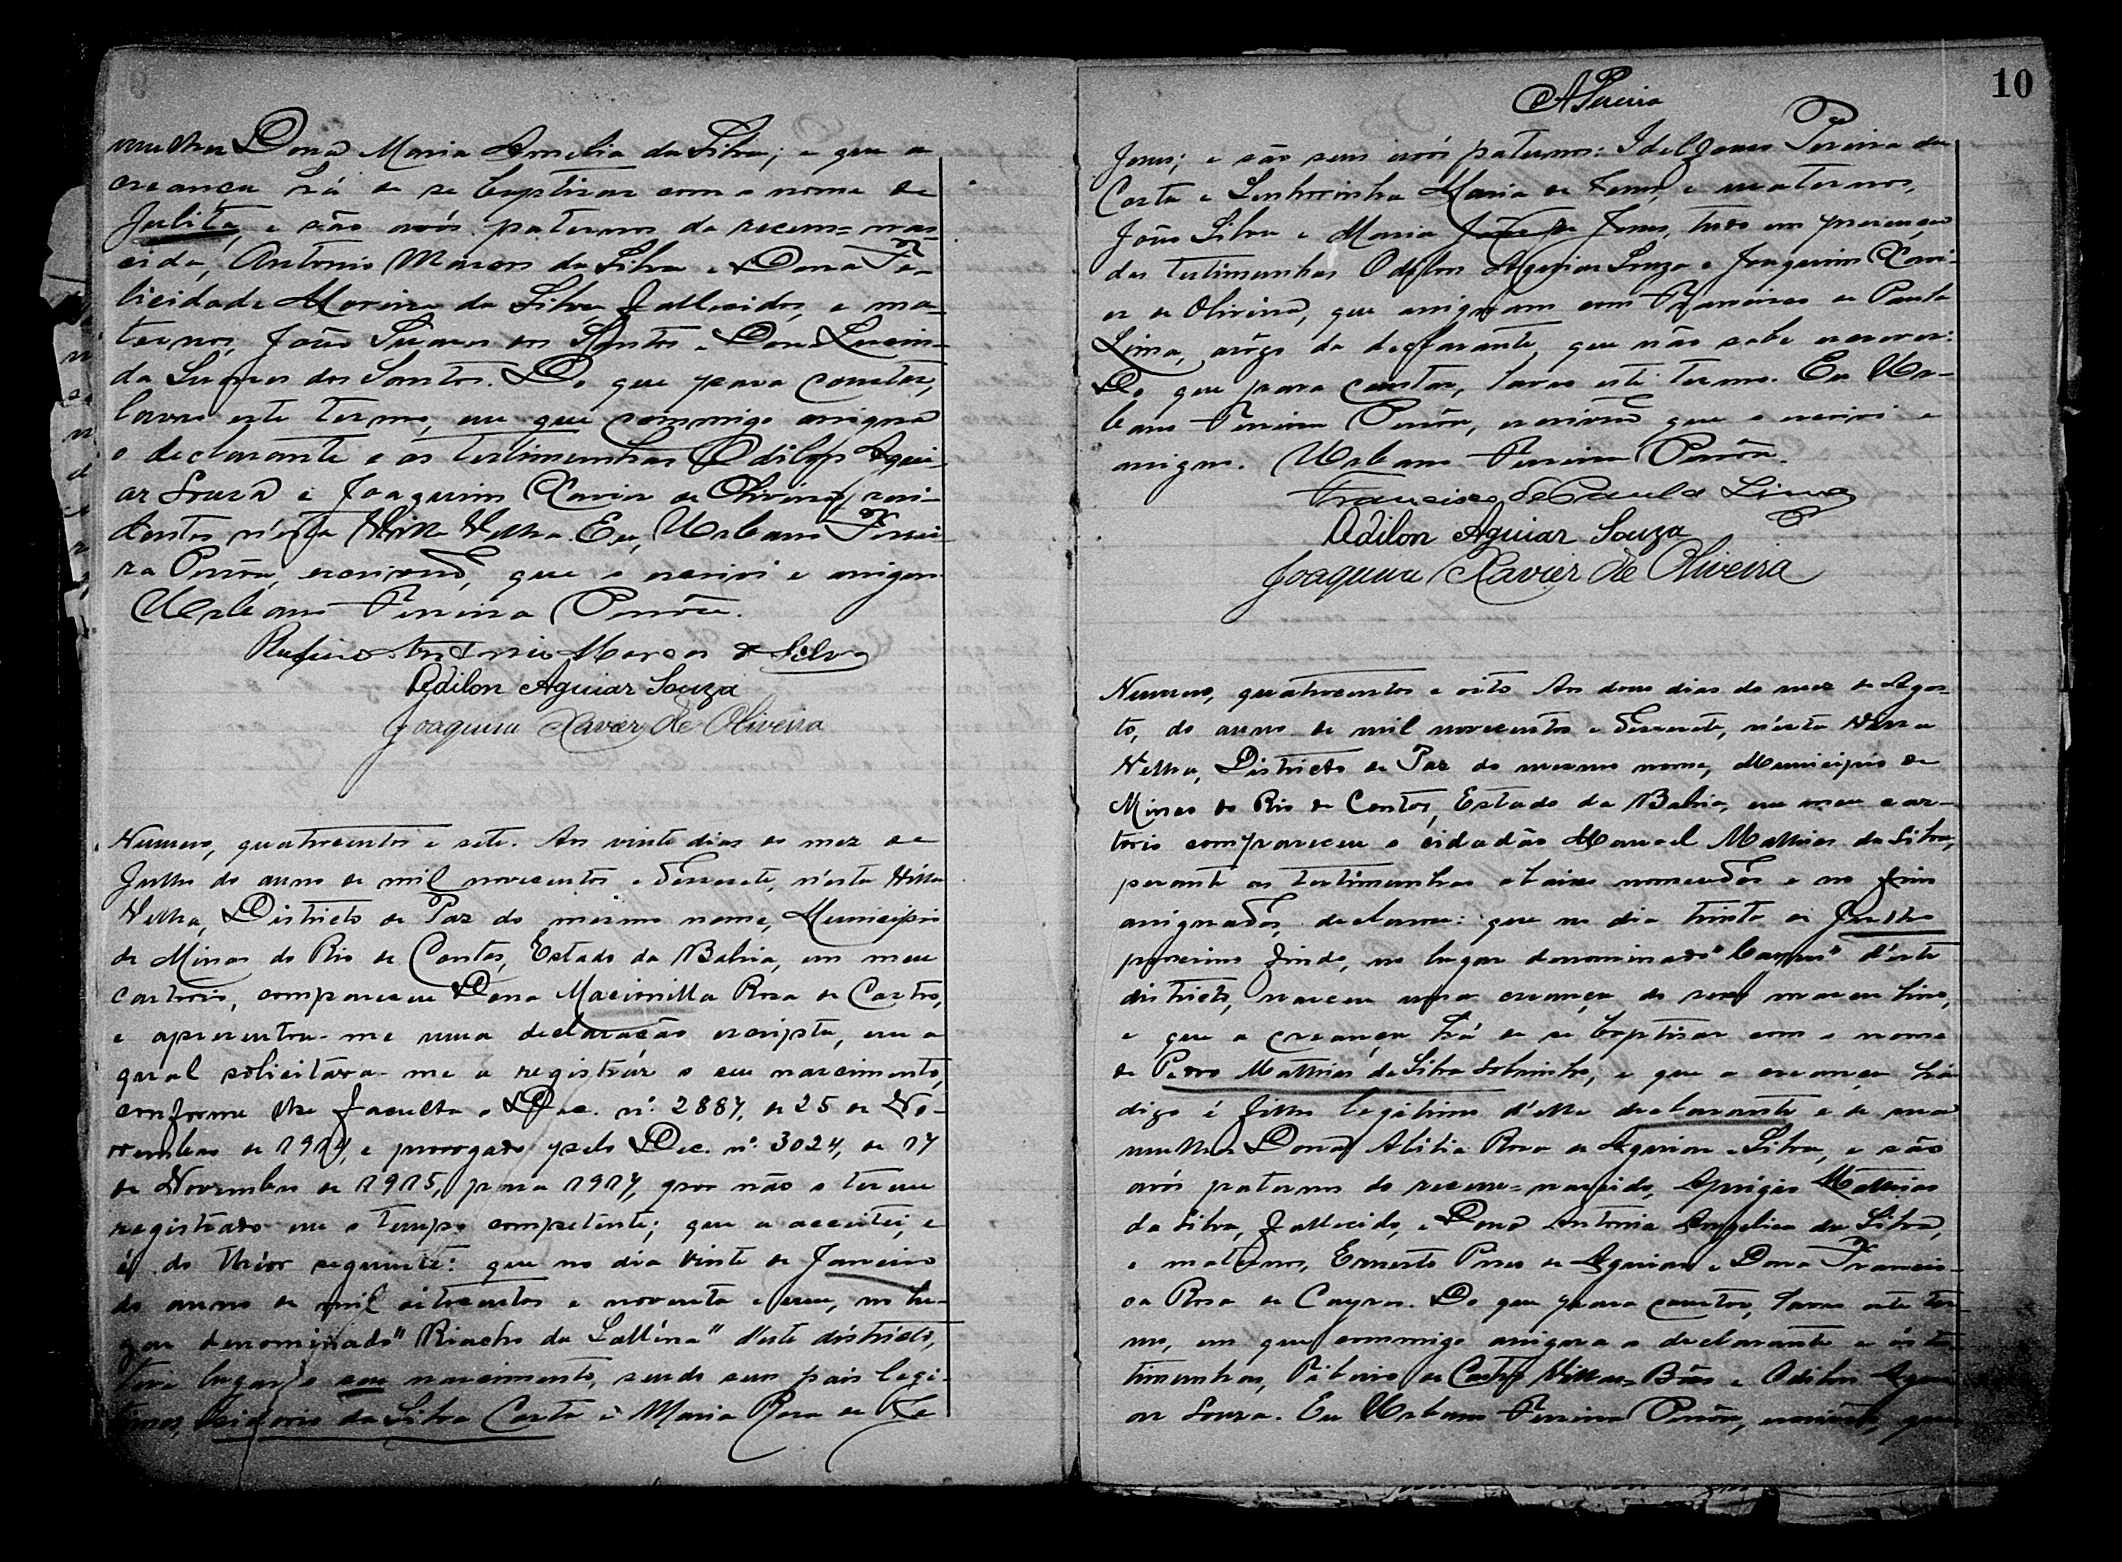 mulher Dona Maria Amelia da Silva; e que a
creança há de se baptisar com o nome de
Julita, e são avós paternos da recem=nas-
cida, Antonio Marcos da Silva e Dona Fe-
licidade Moreira da Silva, fallecidos, e ma-
ternos, João Soares dos Santos e Dona Lucin-
da Soares dos Santos. Do que para constar,
lavro este termo, em que commigo assigna
o declarante e as testimunhas Odilon Agui-
ar Souza e Joaquim Xavier de Oliveira, resi-
dentes n'ésta Villa Velha. Eu, Urbano Ferrei-
ra, escrivão, que o escrivi e assigno.
Urbano Ferreira
Rufino Antonio Marcos da Silva
Odilon Aguiar Souza
Joaquim Xavier de Oliveira
Numero, quatrocentos e sete. Aos vinte dias do mez de
Julho do anno de mil novecentos e desesete, n'esta Villa
Velha, Districto de Paz do mesmo nome, Municipio
de Minas do Rio de Contas, Estado da Bahia, em meu
cartorio, compareceu Dona Marionilla Rosa de Castro,
e apresentou-me uma declaração escripta, em a
qual solicitava-me a registrár o seu nascimento,
conforme lhe faculta o Dec. nº. 2887, de 25 de No-
vembro de 1914, e prorogado pelo Dec. nº. 3024, de 17
de Novembro de 1915, para 1917, por não o terem
registrado em o tempo competente; que a acceitei, e
é do theór seguinte: que no dia vinte de Janeiro
do anno de mil oitocentos e noventa e, no lu-
gar denominado "Riacho da" d'este districto,
teve lugar o seu nascimento, sendo seus pais legi-
timos, Isidorio da Silva Costa e Maria Rosa de Je
APereira
10
Jesus; e são seus avós paternos: Pereira da
Costa e Senhorinha Maria de Jesus, e maternos,
João Silva e Maria de Jesus, tudo em presença
das testimunhas Odilon Aguiar Souza e Joaquim Xavi-
er de Oliveira, que assignam com Francisco de Paula
Lima, arôgo da declarante, que não sabe escrever:
Do que para constar, lavro este termo. Eu Ur-
bano Ferreira, escrivão que o escrivi e
assigno. Urbano Ferreira
Francisco de Paula Lima
Odilon Aguiar Souza
Joaquim Xavier de Oliveira
Numero, quatrocentos e oito Aos dous dias do mez de Agos-
to, do anno de mil novecentos e desesete, n'ésta Villa
Velha, Districto de Paz do mesmo nome, Municipio de
Minas do Rio de Contas, Estado da Bahia, em meu car-
torio compareceu o cidadão Manoel Mathias da Silva,
perante as testimunhas abaixo nomeadas e no fim
assignadas, declarou: que no dia trinta de Julho
proximo findo, no lugar denominado "" d'este
districto, nasceu uma creança do sexo masculino,
e que a creança há de se baptisar com o nome
de Pedro Mathias da Silva Sobrinho, e que a creança hâ
digo é filho legitimo d'elle declarante e de sua
mulher Dona Abilia Rosa de Aguiar e Silva, e são
avós paternos do recem=nascido, Aprigio Mathias
da Silva, fallecido, e Dona Antonia Angelica da Silva,
e maternos, Ernesto Pires de Aguiar e Dona Francis-
ca Rosa de. Do que para constar, lavro este ter-
mo, em que commigo assigna o declarante e ás tes-
timunhas, Tiberio de Castro Villas-Bôas e Odilon Agui
ar Souza. Eu Urbano Ferreira, escrivão, que